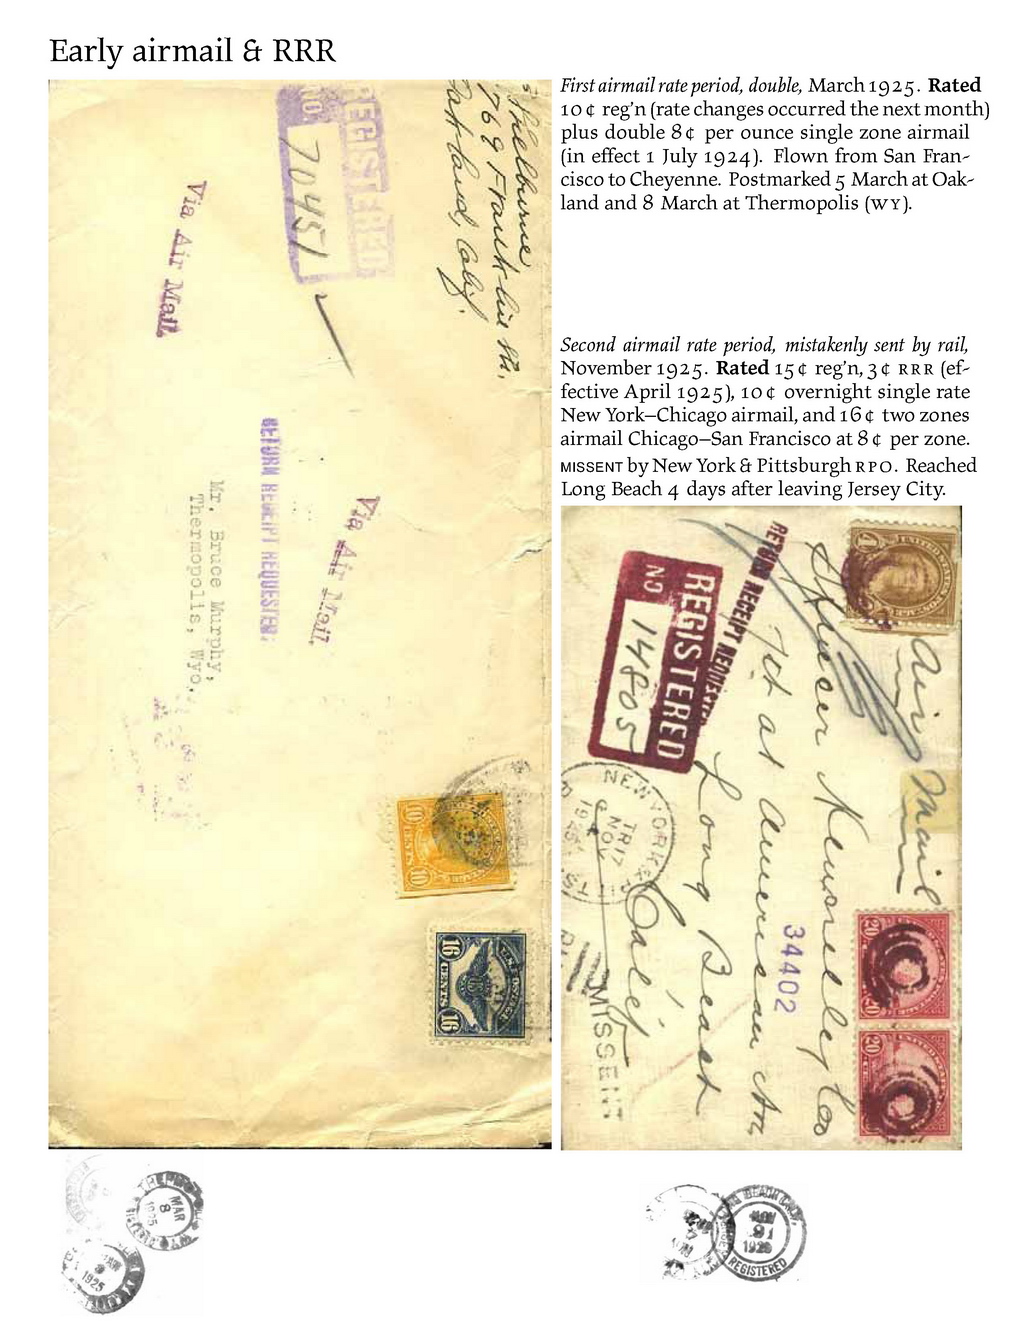 Early airmail & RRR
First airmail rate period, double, March 1925. Rated
10 ¢ reg'n (rate changes occurred the next month)
plus double 8 ¢ per ounce single zone airmail
(in effect 1 July 1924). Flown from San Fran-
cisco to Cheyenne. Postmarked 5 March at Oak-
land and 8 March at Thermopolis (WY).
Second airmail rate period, mistakenly sent by rail,
November 1925. Rated 15 ¢ reg'n, 3 ¢ RRR (ef-
fective April 1925), 10 ¢ overnight single rate
New York–Chicago airmail, and 16 ¢ two zones
airmail Chicago–San Francisco at 8 ¢ per zone.
MISSENT by New York & Pittsburgh RPO. Reached
Long Beach 4 days after leaving Jersey City.
Shelburne
769 Franklin St.
Oakland, Calif.
REGISTERED
NO.
70451
Via Air Mail
RETURN RECEIPT REQUESTED
Via Air Mail
Mr. Bruce Murphy,
Thermopolis, Wyo.
10 CENTS 10
16 CENTS 16
MAR
8
1925
1925
Air Mail
RETURN RECEIPT REQUESTED
REGISTERED
NO
14805
at American Ave,
34402
Long Beach
Calif
NEW YORK
TR 17
NOV
1925
MISSENT
20 20
20 20
BEACH CALIF.
NOV
21
REGISTERED